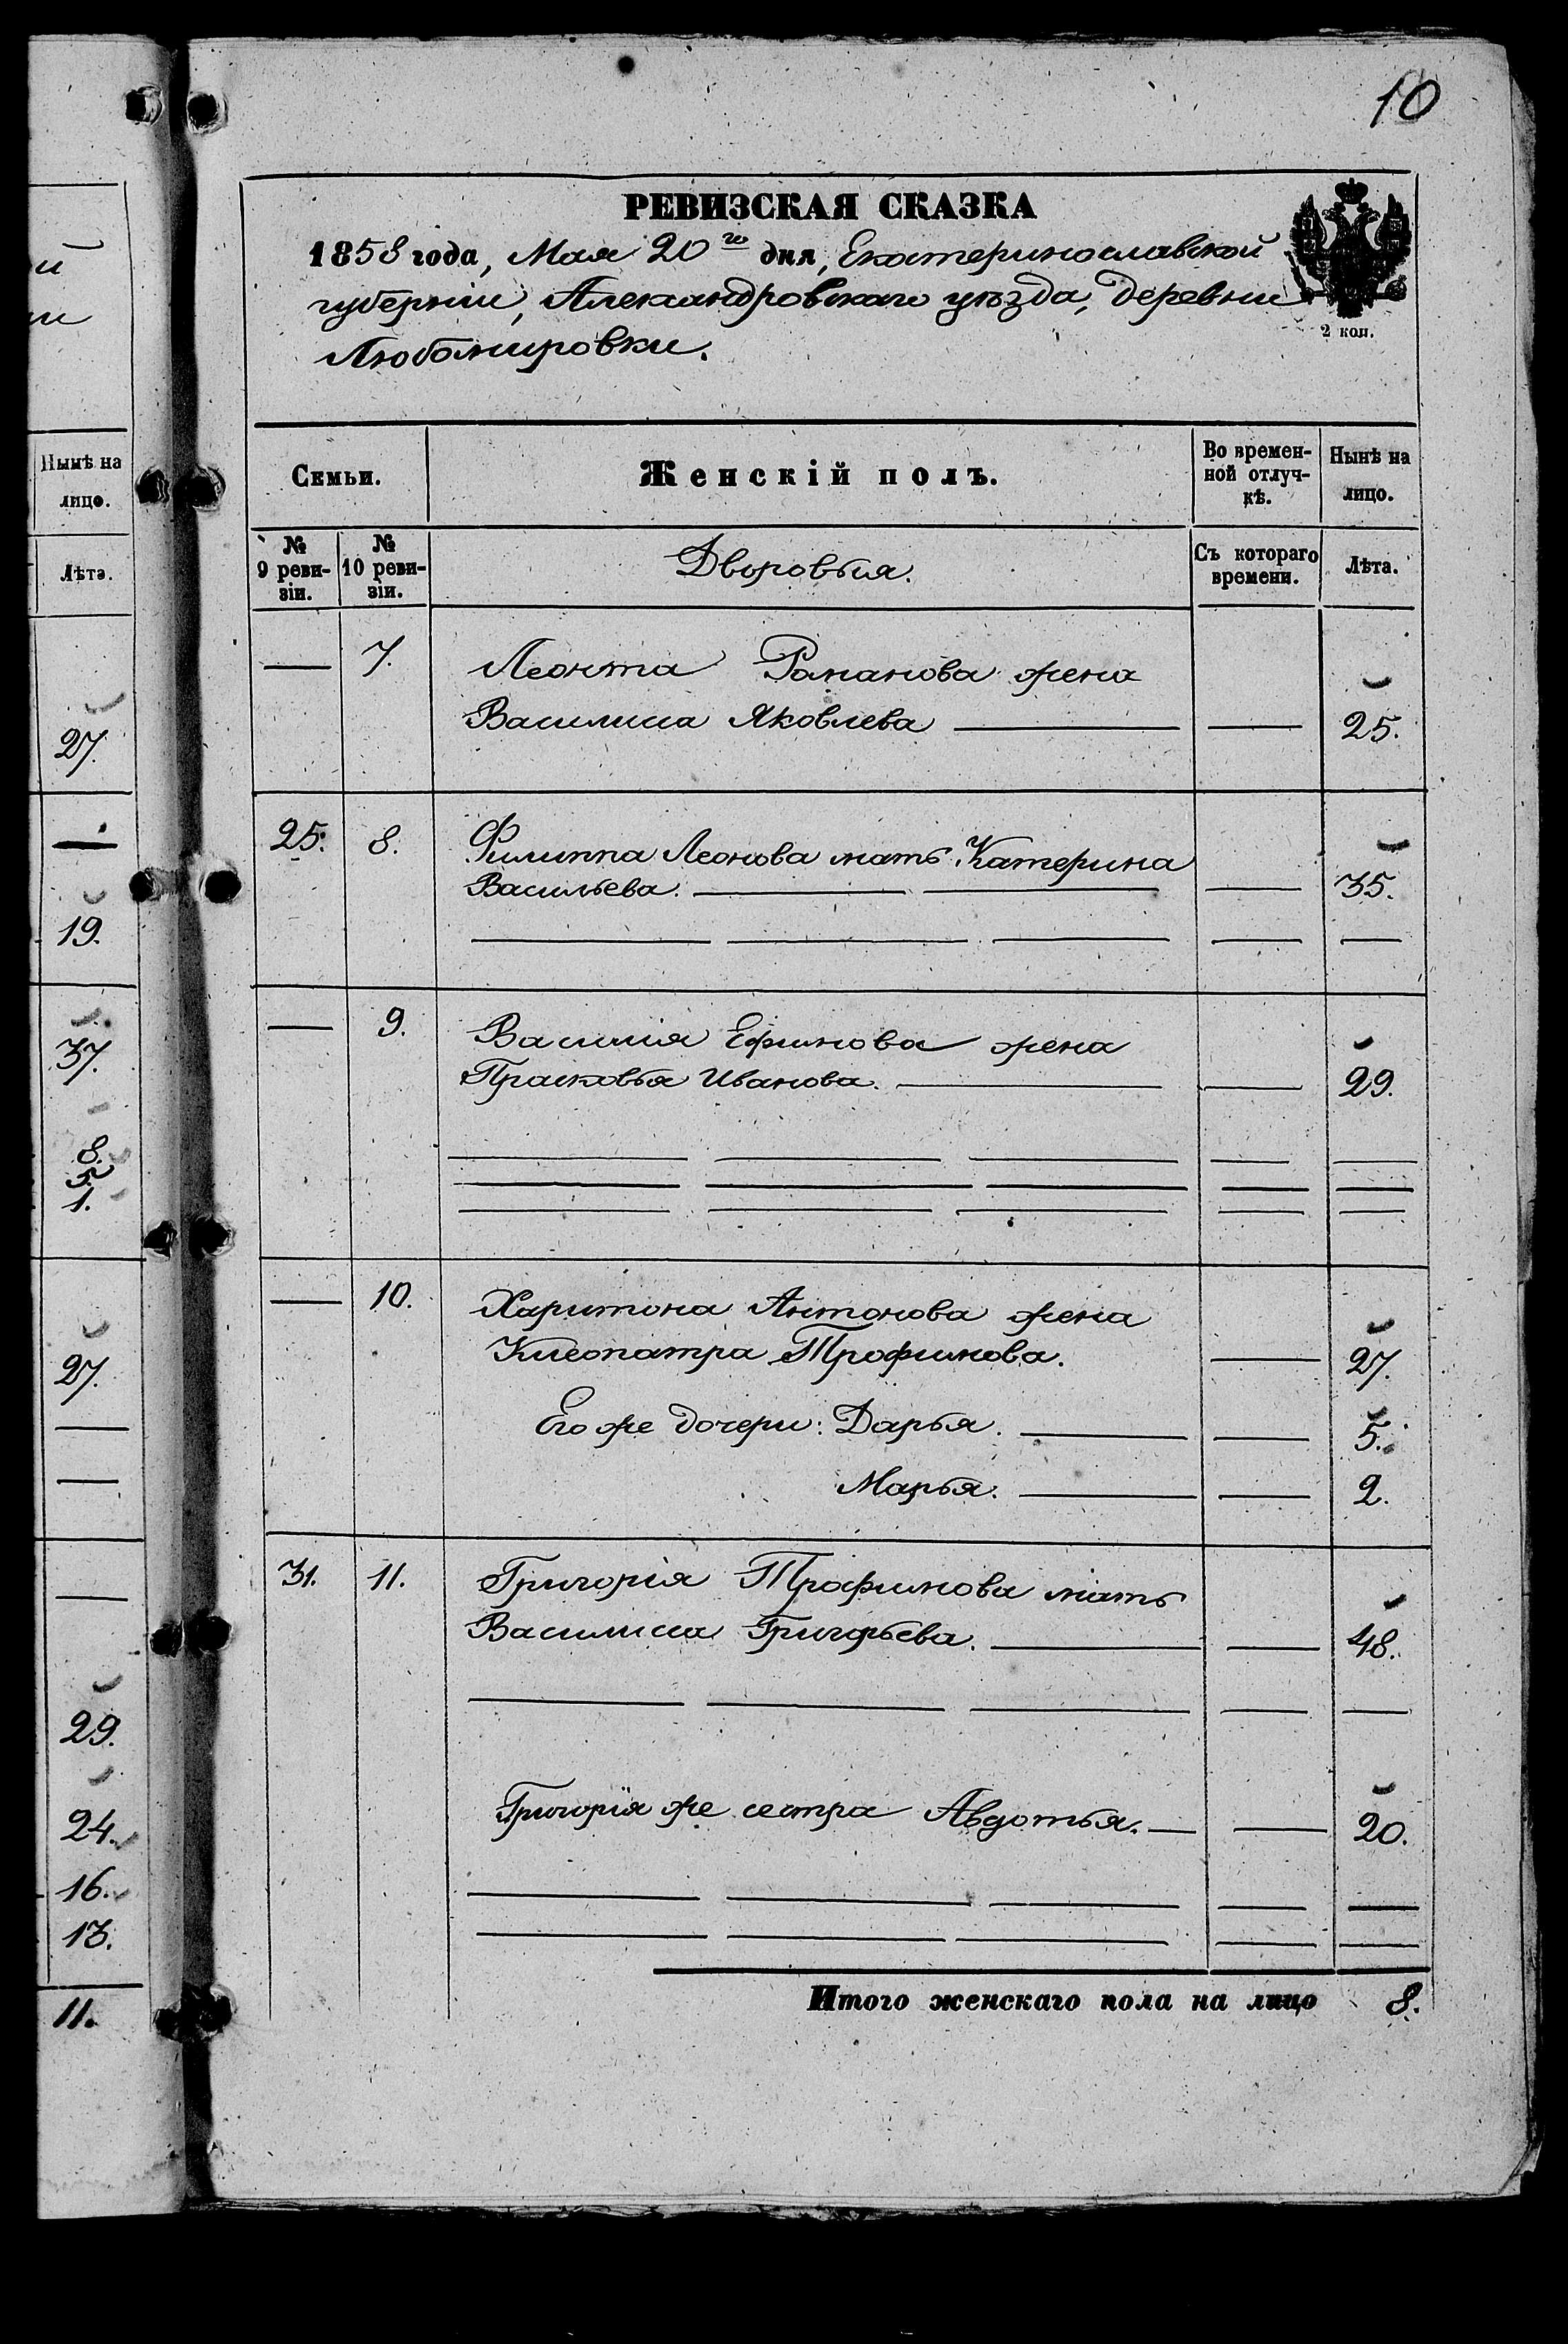 й
и
ни
Нынѣ на
лицо.
Лѣта.
27.
19.
37.
8.
5.
1.
27.
29.
24.
16.
13.
11.
10
РЕВИЗСКАЯ СКАЗКА
1858 года, Мая 20го дня, Екатеринославской
губерніи, Александровскаго уѣзда, деревни
Любомировки.
2 коп.
Семьи.
Женскій полъ.
Во времен-
ной отлуч-
кѣ.
Нынѣ на
лицо.
№
9 реви-
зіи.
№
10 реви-
зіи.
Дворовыя.
Съ котораго
времени.
Лѣта.
7. Леонта Романова жена
Василиса Яковлева — — 25.
25. 8. Филиппа Леонова мать Катерина
Васильева. — — — 35.
— 9. Василія Ефимова жена
Прасковья Иванова. — — 29.
— 10. Харитона Антонова жена
Клеопатра Трофимова. — 27.
Его же дочери: Дарья. — — 5.
Марья. — — 2.
31. 11. Григорія Трофимова мать
Василиса Григорьева. — — 48.
Григорія же сестра Авдотья. — — 20.
Итого женскаго пола на лицо 8.